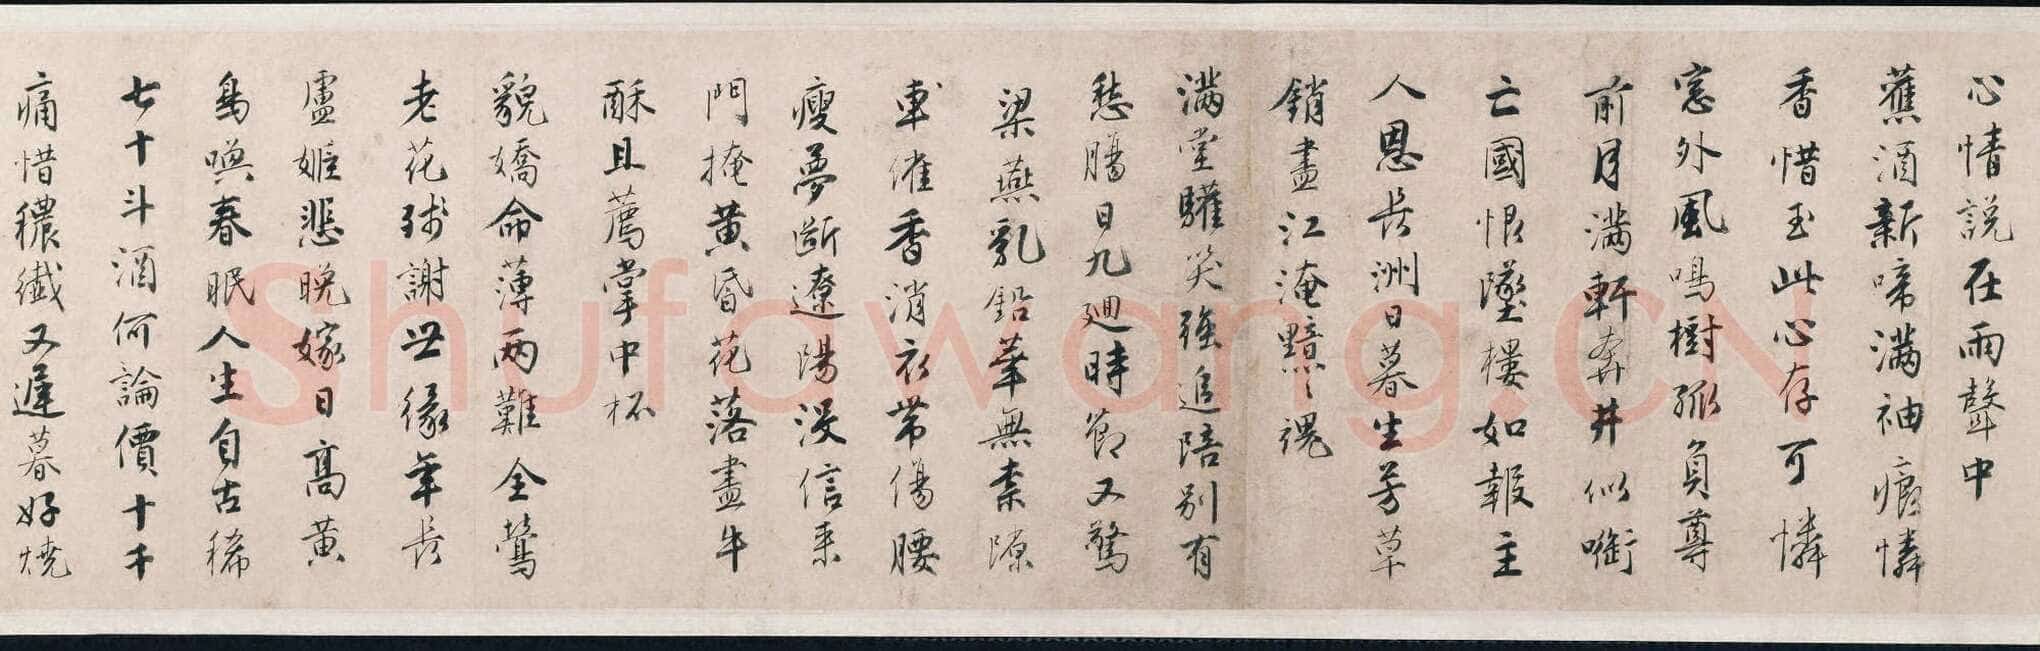 心情說在雨聲中
蕉酒新啼滿袖痕憐
香惜玉此心存可憐
窓外風鳴樹孤負尊
前月滿軒奔井似銜
亡國恨墜樓如報主
人恩長洲日暮生芳草
銷盡江淹黯〻魂
滿堂驩笑強追陪別有
愁腸日九廻時節又驚
梁燕乳鉛華無柰隙
車催香消衣帶傷腰
瘦夢斷遼陽沒信來
門掩黃昏花落盡牛
酥且薦掌中杯
貌嬌命薄兩難全鶯
老花殘謝世緣年長
盧姬悲晚嫁日高黃
鳥喚春眠人生自古稀
七十斗酒何論價十千
痛惜穠纖又遲暮好燒
Shufawang.CN